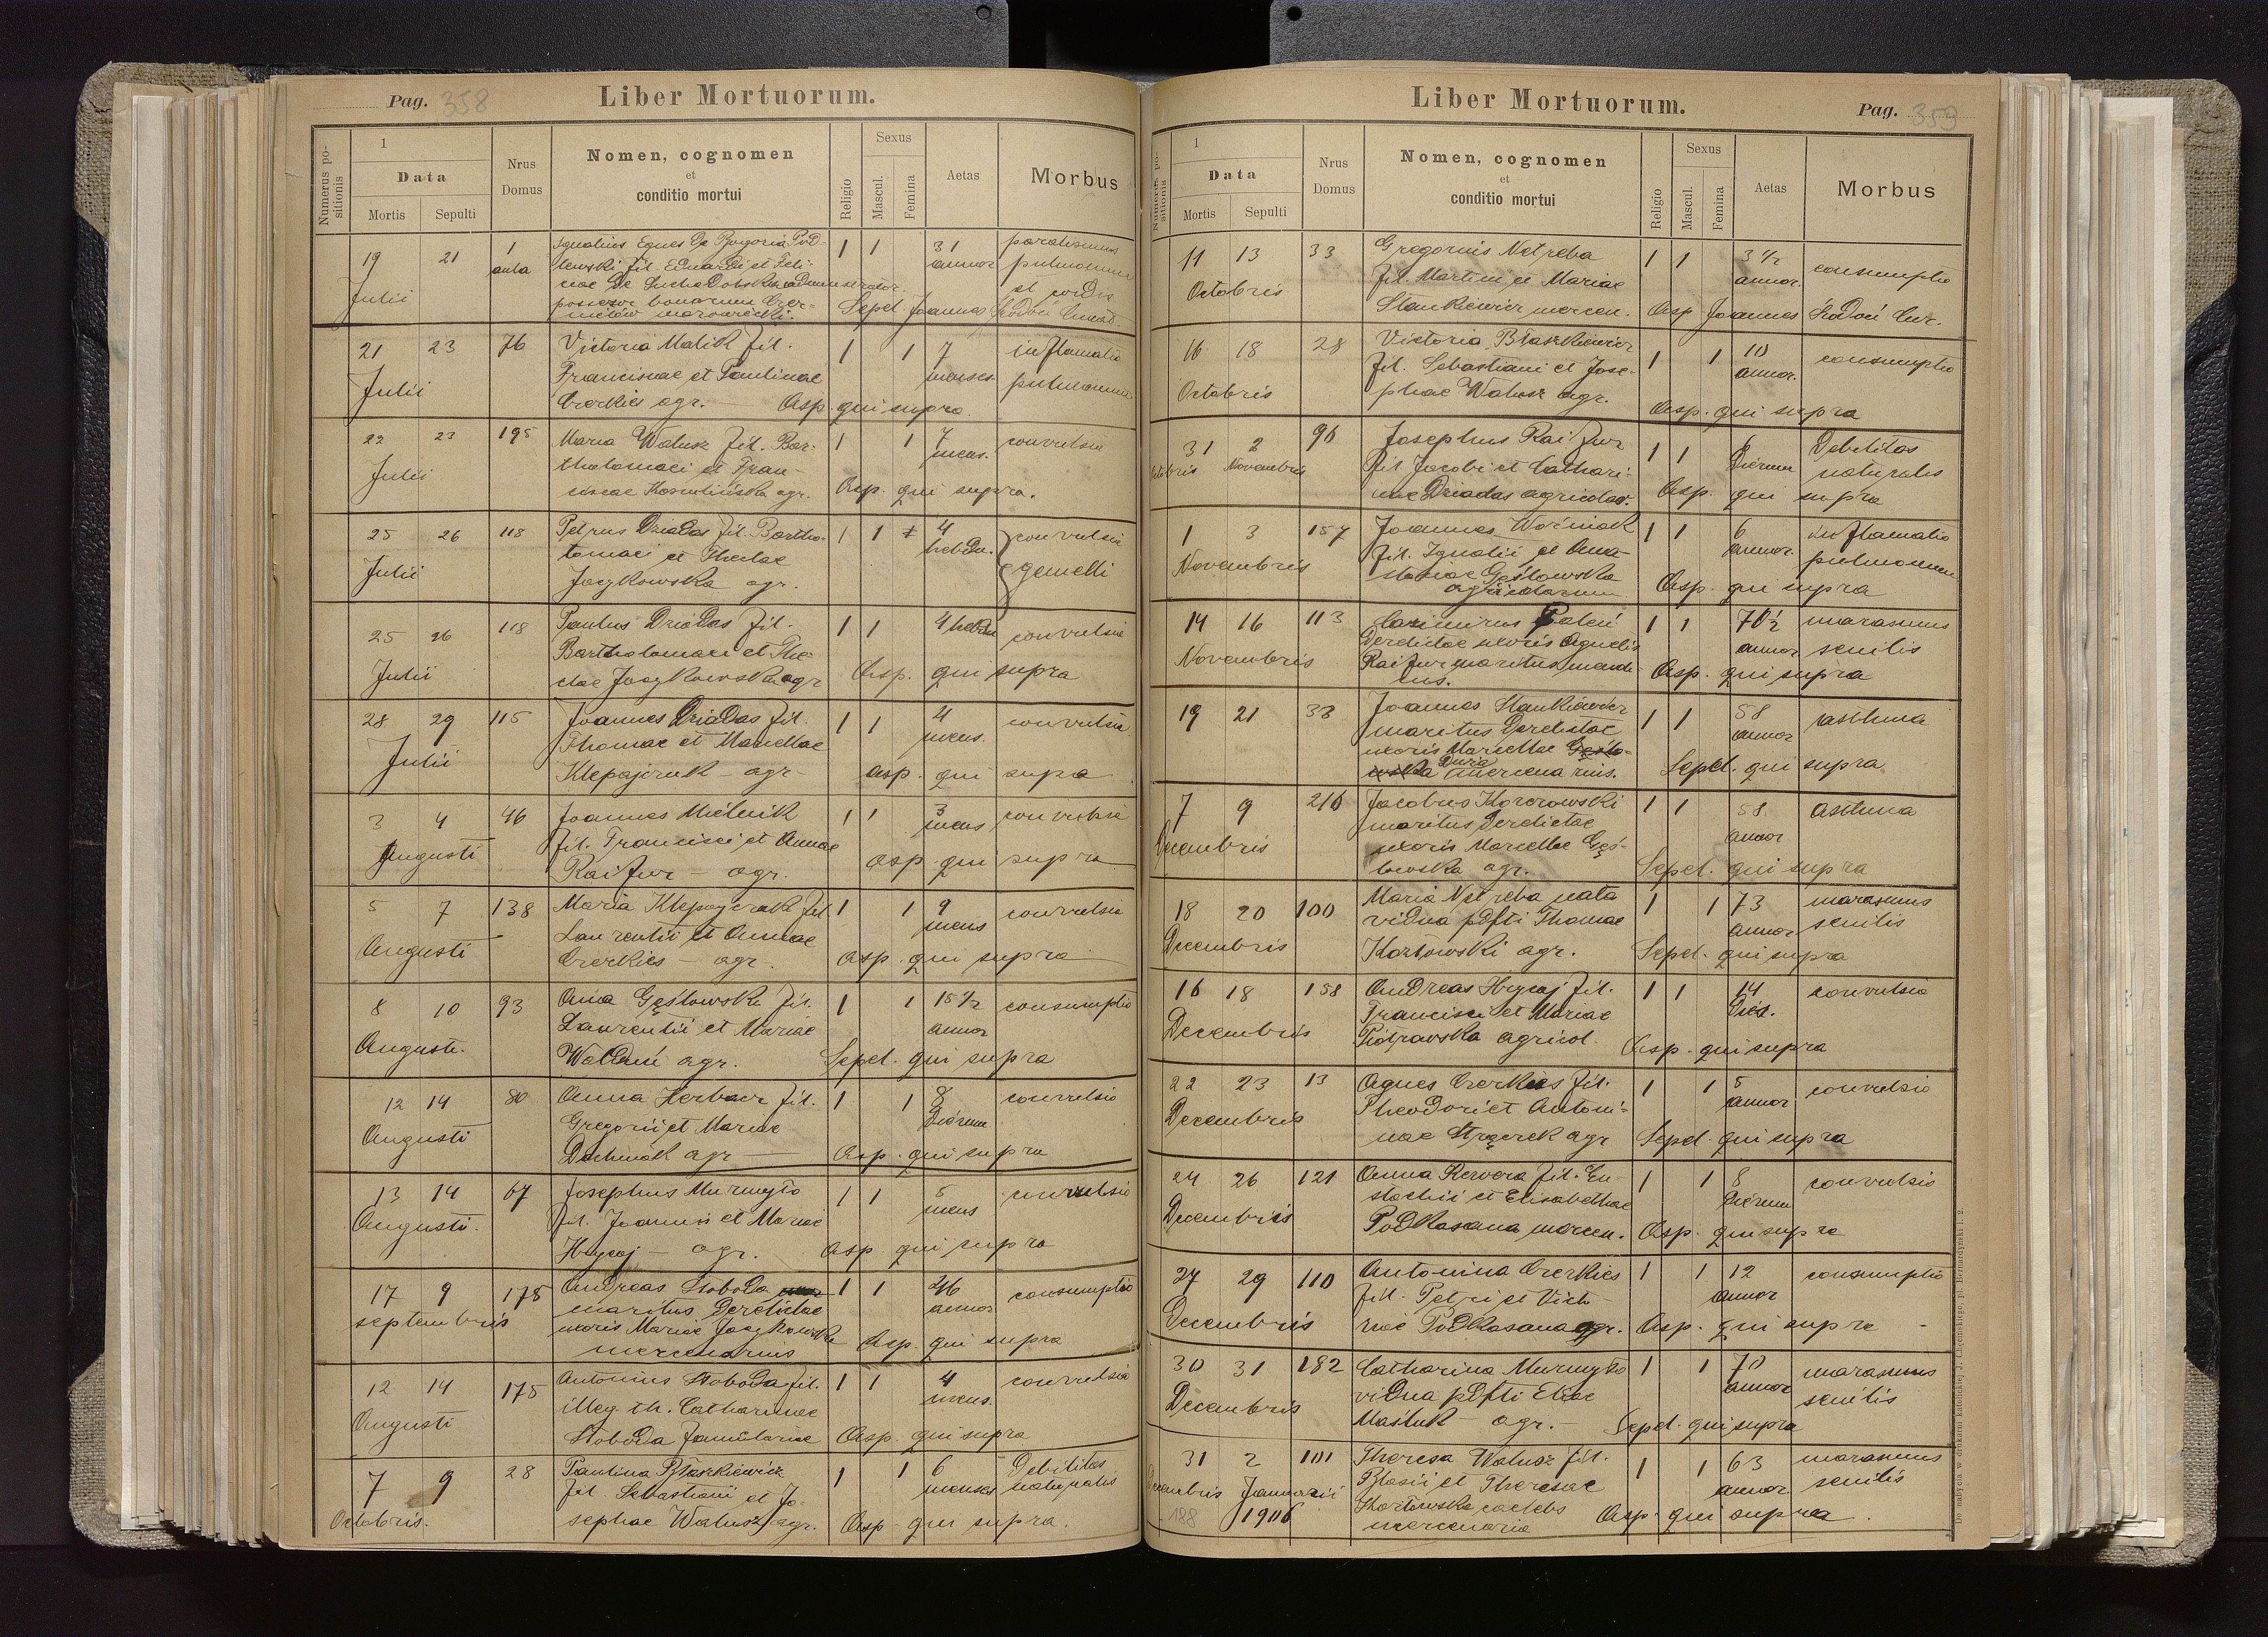 Pag. 358
Liber Mortuorum.
Numerus positionis
1
Data
Mortis Sepulti
Nrus Domus
Nomen, cognomen
et
conditio mortui
Religio
Sexus
Mascul.
Femina
Aetas
Morbus
19 21 1 Ignatius Eques De Bogoria Pod- 1 1 31 paralismus
aula lewski fil. Eduardi et Feli- annor pulmonum
Julii nae De Sucha Dolska administrator et cordis
possesor bonorum Czer-
nielów mazowiecki. Sepel. Joannes
21 23 76 Victoria Malik fil. 1 1 7 inflamatio
Julii Franciscae et Paulinae menses. pulmonum
Czerkies agr. — Asp. qui supra.
22 23 195 Maria Walusz fil. Bar- 1 1 7 convulsio
Julii tholomaei et Fran- mens.
ciscae agr. Asp. qui supra.
25 26 118 Petrus Dziadas fil. Bartho- 1 1 4 convulsio
Julii lomaei et Theclae hebdu. gemelli
Jaczkowska agr.
25 26 118 Paulus Dziadas fil. 1 1 4 hebdu convulsio
Julii Bartholomaei et The-
clae Jaczkowska agr Asp. qui supra
28 29 115 Joannes Dziadas fil. 1 1 4 convulsio
Julii Thomae et Mariellae mens.
Klepajczuk - agr - asp. qui supra
3 4 46 Joannes Mielnik 1 1 3 convulsio
Augusti fil. Francisci et Annae mens
Raifur - agr. asp. qui supra
5 7 138 Maria Klepajczuk fil 1 1 9 convulsio
Augusti Laurentii et Annae mens
Czerkies - agr. asp. qui supra
8 10 93 Anna Gęstowska fil. 1 1 15 1/2 consumptio
Augusti. Laurentii et Mariae annor
agr. Sepel. qui supra
12 14 80 Anna Herbacz fil. 1 1 8 convulsio
Augusti Gregorii et Mariae Dierum
agr — Asp. qui supra
13 14 67 Josephus Murmyło 1 1 5 convulsio
Augusti. fil. Joannis et Mariae mens
Hycaj - agr. asp. qui supra
17 9 175 Andreas Słoboda 1 1 46 consumptio
septembris maritus Derelictae annor
uxoris Mariae Jaczkowska Asp. qui supra
mercenarius
12 14 175 Antonius Słoboda fil. 1 1 4 convulsio
Augusti illeg. th. Catharinae mens.
Słoboda famulariae Asp. qui supra
7 9 28 Paulina Błaszkiewicz 1 1 6 Debilitas
Octobris. fil. Sebastiani et Jo- menses naturalis
sephae Walusz agr. Asp. qui supra.
Liber Mortuorum.
Pag. 359
Numerus positionis
1
Data
Mortis Sepulti
Nrus Domus
Nomen, cognomen
et
conditio mortui
Religio
Sexus
Mascul.
Femina
Aetas
Morbus
11 13 33 Gregorius Netreba 1 1 3 1/2 consumptio
Octobris fil. Martini et Mariae annor.
Stankiewicz mercen. Asp. Joannes
16 18 28 Victoria Błaszkiewicz 1 1 10 consumptio
Octobris fil. Sebastiani et Jose- annor.
phae Walusz agr. Asp. qui supra
31 2 96 Josephus Raifur 1 1 6 Debilitas
Octobris Novembris fil Jacobi et Cathari- Dierum naturalis
nae Dziadas agricolar. Asp. qui supra
1 3 157 Joannes Woźniak 1 1 6 inflamatio
Novembris fil. Ignatii et Ana- annor. pulmonum
stasiae Gęstowska
agricolarum Asp. qui supra
14 16 113 Casimirus 1 1 70 1/2 marasmus
Novembris Derelictae uxoris Agnetis annor senilis
Raifur maritus mendi-
cus. Asp. qui supra
19 21 33 Joannes Stankiewicz 1 1 58 asthma
maritus Derelictae annor
uxoris Mariellae
Dura mercenarius. Sepel. qui supra
7 9 216 Jacobus Korczowski 1 1 58. asthma
Decembris maritus Derelictae annor
uxoris Mariellae Gęs-
towska agr. Sepel. qui supra
18 20 100 Maria Netreba nata 1 1 73 marasmus
Decembris vidua pdfti Thomae annor senilis
Kozłowski agr. Sepel. qui supra
16 18 158 Andreas Hycaj fil. 1 1 14 convulsio
Decembris Francisci et Mariae Dies.
Piotrowska agricol. Asp. qui supra
22 23 13 Agnes Czerkies fil. 1 1 5 convulsio
Decembris Theodori et Antoni- annor
nae agr Sepel. qui supra
24 26 121 Anna Rezwora fil. Eu- 1 1 8 convulsio
Decembris stachii et Elisabethae Dierum
Podkasana mercen. Asp. qui supra
27 29 110 Antonina Czerkies 1 1 12 consumptio
Decembris fil. Petri et Victo- annor
riae Podkasana agr. Asp. qui supra
30 31 182 Catharina Murmyło 1 1 70 marasmus
Decembris vidua pdfti Eliae annor senilis
Masluk - agr. - Sepel. qui supra
31 2 101 Theresa Walusz fil. 1 1 63 marasmus
Decembris Januarii Blasii et Theresae annor. senilis
188 1906 Kozłowska caelebs
mercenaria Asp. qui supra.